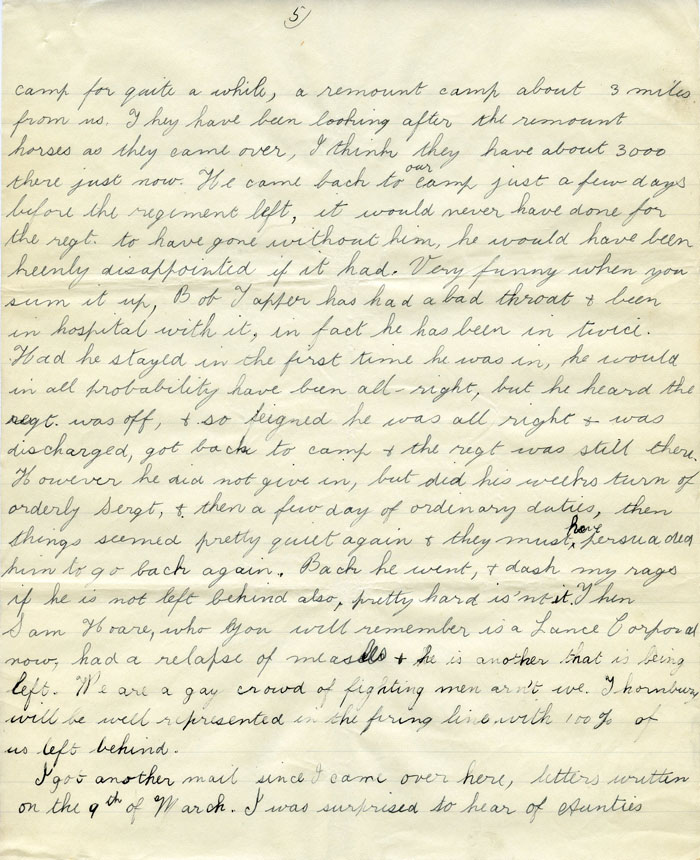 5
camp for quite a while, a remount camp about 3 miles
from us. They have been looking after the remount
horses as they came over, I think they have about 3000
there just now. He came back to our camp just a few days
before the regiment left, it would never have done for
the regt. to have gone without him, he would have been
keenly disappointed if it had. Very funny when you
sum it up, Bob Tapper has had a bad throat & been
in hospital with it, in fact he has been in twice.
Had he stayed in the first time he was in, he would
in all probability have been all-right, but he heard the
regt. was off, & so feigned he was all right & was
discharged, got back to camp & the regt was still there.
However he did not give in, but did his weeks turn of
orderly Sergt, & then a few day of ordinary duties, then
things seemed pretty quiet again & they must have persuaded
him to go back again. Back he went, & dash my rags
if he is not left behind also, pretty hard is'nt it. Then
Sam Hoare, who you will remember is a Lance Corporal
now, had a relapse of measles & he is another that is being
left. We are a gay crowd of fighting men arn't we. Thornbury
will be well represented in the firing line, with 100% of
us left behind.
I got another mail since I came over here, letters written
on the 9th of March. I was surprised to hear of Aunties